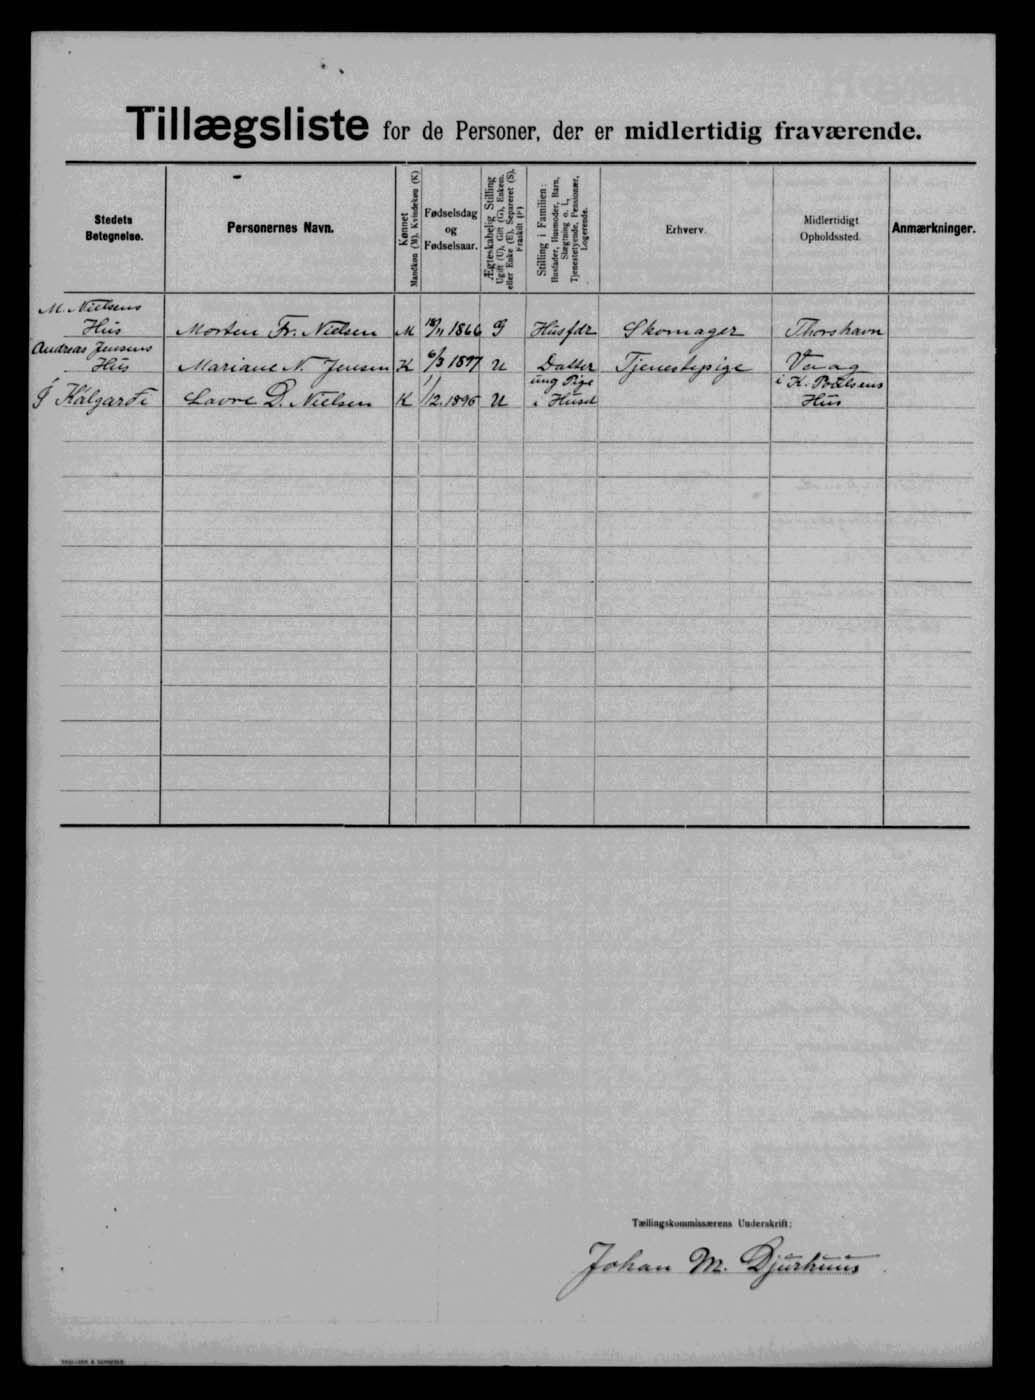 Tillægsliste for de Personer, der er midlertidig fraværende.
Stedets Betegnelse.
Personernes Navn.
Kønnet
Mandkøn (M). Kvindekøn (K)
Fødselsdag
og
Fødselsaar.
Ægteskabelig Stilling
Ugift (U), Gift (G), Enkem.
eller Enke (E), Separeret (S),
Fraskilt (F)
Stilling i Familien:
Husfader, Husmoder, Barn,
Slægtning o. l.,
Tjenestetyende, Pensionær,
Logerende.
Erhverv.
Midlertidigt
Opholdssted.
Anmærkninger.
M. Nielsens
Hus Morten Fr. Nielsen M 18/11 1866 G Husfdr Skomager Thorshavn
Andreas Jensens
Hus Mariane N. Jensen K 6/3 1877 U Datter Tjenestepige Vaag
ung Pige i K. Poulsens
Í Kálgardi D. Nielsen K 1/12 1895 U i Hus Hus
Tællingskommissærens Underskrift:
Johan M. Djurhuus